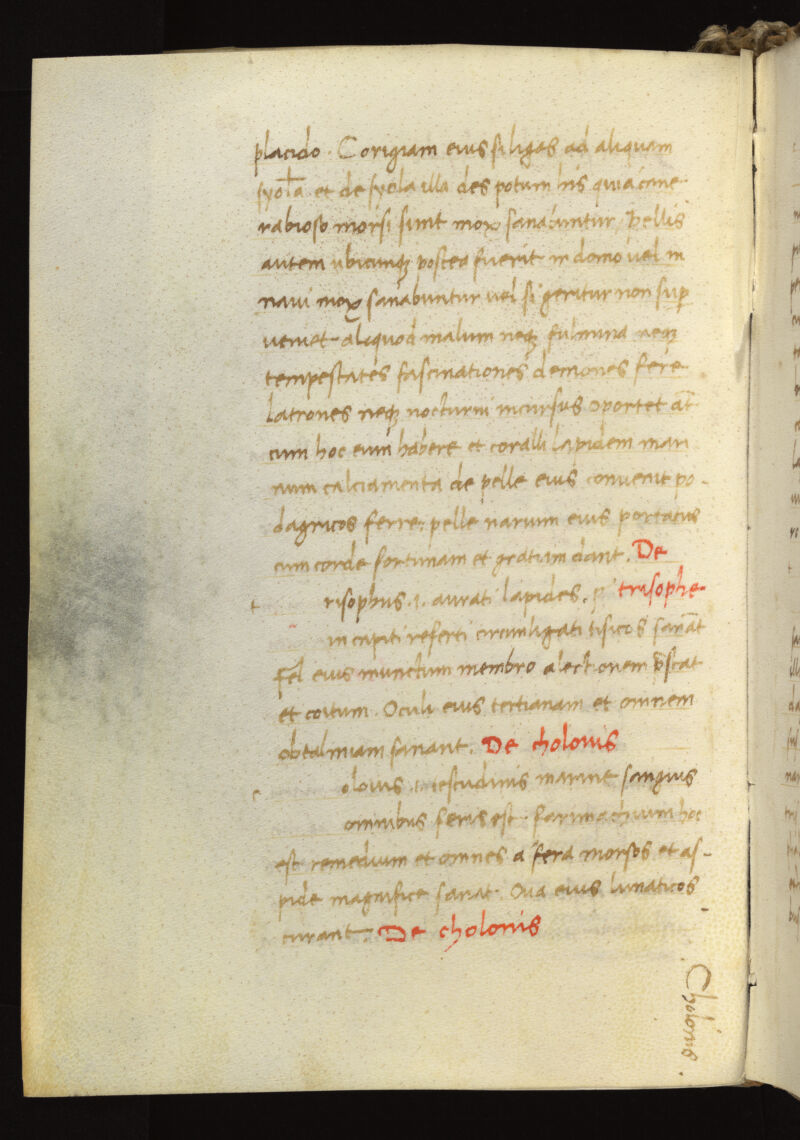 placido. Corigiam eius si ligas ad aliquam
fyola et de fyola illa des potum his qui a cane
rabioso morsi sunt mox sanabuntur. Pellis
autem ubicunqꝫ postea fuerit in domo vel in
navi mox sanabuntur vel si geritur non sup
veniet aliquod malum neqꝫ fulmina neqꝫ
tempestates fascinationes demones fere
latrones neqꝫ nocturni incursus oportet at̄
cum hoc eum habere et coralli lapidem mari
num calciamenta de pelle eius convenit po-
dagricos ferre: pelle narium eius portatus
cum corde fortunam et gratiam dant. De
risophus .i. aurati lapides. trisophe
in capiti referti circumligati tisicos sanāt
Fel eius munctum membro alectionem p̄stat
et coitum. Oculi eius tertianam et omnem
obtalmiam sanant. De cholonis
olonis .i. testudinis marine sanguis
omnibus feris est farmachum hoc
est remedium et omnes a fera morsos et as-
pide magnifice sanat. Ova eius lunaticos
curant. De cholonis
Cholonis.